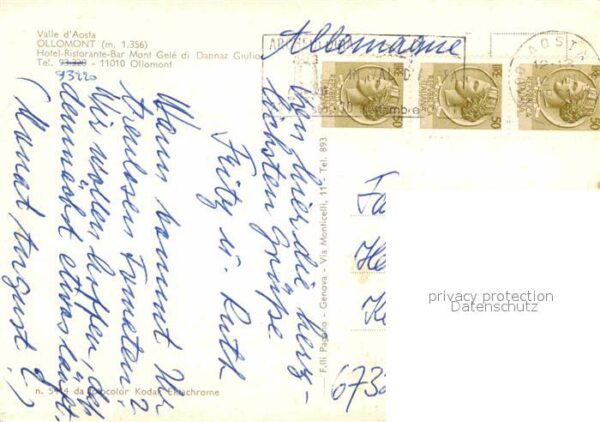 Valle d'Aosta
OLLOMONT (m. 1.356)
Hotel-Ristorante-Bar Mont Gelé di Dannaz Giulio
Tel. 93.220 - 11010 Ollomont
93220
Allemagne
AOSTA
50
50
50
Von hier die herz-
lichsten Grüße
Fritz u. Ruth
Wann kommt Ihr
treulosen Tomaten?
Wir wollen hoffen, daß
demnächst etwas läuft.
(Monat August?)
F.lli Pagano - Genova - Via Monticelli, 11 - Tel. 893
n. 5 4 da colocolor Kodak Ektachrome
Fa
He
673
privacy protection
Datenschutz